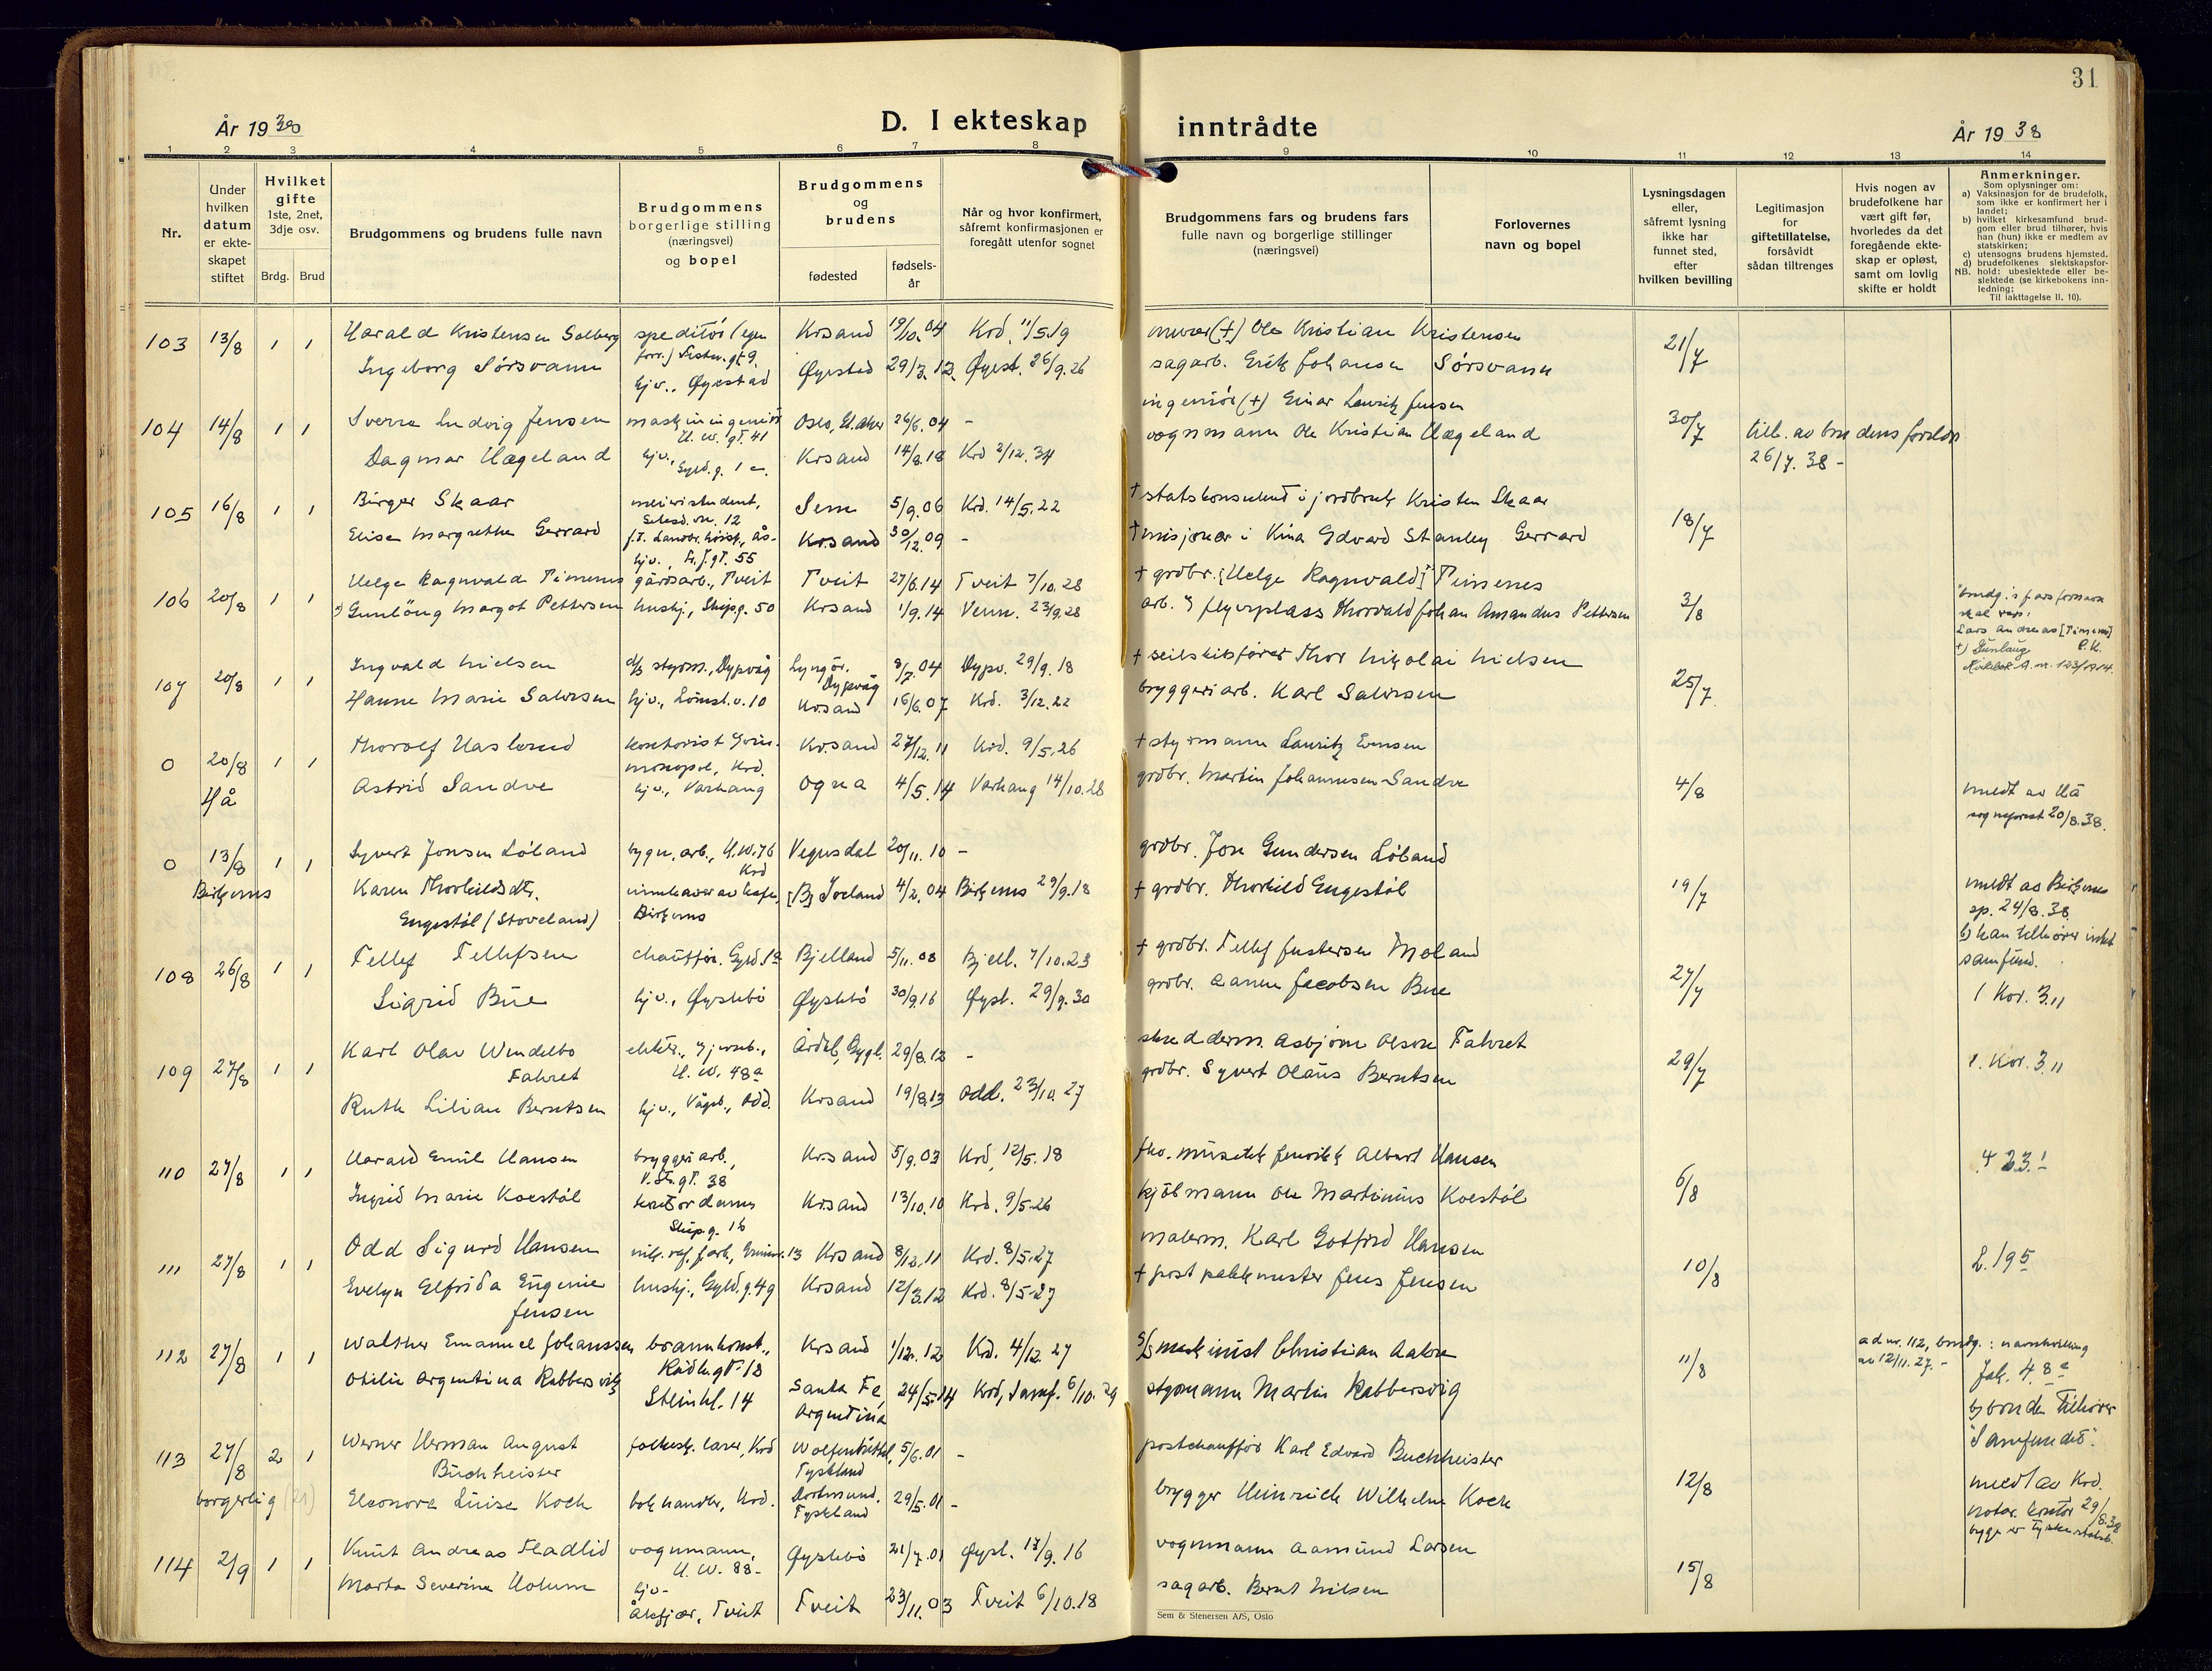 31
År 1938
D. I ekteskap
inntrådte
År 1938
1 2 3 4 5 6 7 8 9 10 11 12 13 14
Nr.
Under
hvilken
datum
er ekte-
skapet
stiftet
Hvilket
gifte
1ste, 2net,
3dje osv.
Brdg. Brud
Brudgommens og brudens fulle navn
Brudgommens
borgerlige stilling
(næringsvei)
og bopel
Brudgommens
og
brudens
fødested
fødsels-
år
Når og hvor konfirmert,
såfremt konfirmasjonen er
foregått utenfor sognet
Brudgommens fars og brudens fars
fulle navn og borgerlige stillinger
(næringsvei)
Forlovernes
navn og bopel
Lysningsdagen
eller,
såfremt lysning
ikke har
funnet sted,
efter
hvilken bevilling
Legitimasjon
for
giftetillatelse,
forsåvidt
sådan tiltrenges
Hvis nogen av
brudefolkene har
vært gift før,
hvorledes da det
foregående ekte-
skap er opløst,
samt om lovlig
skifte er holdt
Anmerkninger.
Som oplysninger om:
a) Vaksinasjon for de brudefolk,
som ikke er konfirmert her i
landet;
b) hvilket kirkesamfund brud-
gom eller brud tilhører, hvis
han (hun) ikke er medlem av
statskirken;
c) utensogns brudens hjemsted.
d) brudefolkenes slektskapsfor-
NB. hold: ubeslektede eller be-
slektede (se kirkebokens inn-
ledning;
Til iakttagelse II. 10).
103 13/8 1 1 Harald Kristensen Solberg speditør (egen Krsand 19/10.04 Krd. 11/5.19 murer (+) Ole Kristian Kristensen 21/7
forr.) Festn.gt. 9
Ingeborg Sørsvann hjv., Øyestad Øyestad 29/3.12 Øyest. 26/9.26 sagarb. Erik Johansen Sørsvann
104 14/8 1 1 Sverre Ludvig Jensen maskiningeniør Oslo, V. Aker 26/6.04 - ingeniør (+) Einar Lauritz Jensen 30/7
H. W. gt. 41
Dagmar Hægeland hjv., Gyld.g. 1 Krsand 14/8.18 Krd 2/12.34 vognmann Ole Kristian Hægeland till. av brudens foreldre
26/7.38 -
105 16/8 1 1 Birger Skaar meieristudent, Sem 5/9.06 Krd. 14/5.22 + statskonsulent i jordbruk Kristen Skaar 18/7
f.t. Landbr. høisk., Ås-
Elise Margrethe Gerrard hjv., gt. 55 Krsand 30/12.09 - + misjonær i Kina Edvard Stanley Gerrard
106 20/8 1 1 Helge Ragnvald Timenes gårdsarb., Tveit Tveit 27/6.14 Tveit 7/10.28 + grdbr. [Helge Ragnvald] Timenes 3/8
Gunløug Margot Pettersen hushj., Skipp.g. 50 Krsand 1/9.14 Venn. 23/9.28 arb. flyveplass Thorvald Johan Amandus Pettersen
brudg.s fars fornavn
skal være:
Lars Andreas [Timenes]
+) Gunlaug P.K.
Kirkebok A. nr. 123/1914.
107 20/8 1 1 Ingvald Nielsen d/s styrm., Dypvåg Lyngør, 8/7.04 Dypv. 29/9.18 + seilskibsfører Thor Nikolai Nielsen 25/7
Dypvåg
Hanne Marie Salvesen hjv., Lømsl.v. 10 Krsand 16/6.07 Krd. 3/12.22 bryggeriarb. Karl Salvesen
0 20/8 1 1 Thorolf Haslund kontorist Vin- Krsand 27/12.11 Krd. 9/5.26 + styrmann Lauritz Evensen 4/8
Hå monopol, Krd.
Astrid Sandve hjv., Varhaug Ogna 4/5.14 Varhaug 14/10.28 grdbr. Martin Johannesen Sandve
meldt av Hå
sogneprest 20/8.38.
0 13/8 1 1 Syvert Jonsen Løland bygn. arb., H.W. 76 Vegusdal 20/11.10 - grdbr. Jon Gundersen Løland 19/7
Krd
Birkenes Karen Thorkildsdtr. innehaver av kafe, [B] Iveland 4/2.04 Birkenes 29/9.18 + grdbr. Thorkild Engestøl
Engestøl (Stoveland) Birkenes
meldt av Birkenes
sp. 24/8.38
b) han tilhører intet
samfund.
108 26/8 1 1 Tellef Tellefsen chauffør. Gyld. Bjelland 5/11.08 Bjell. 7/10.23 + grdbr. Tellef Justersen Moland 27/7
Sigrid Bue hjv., Øyslebø Øyslebø 30/9.16 Øysl. 29/9.30 grdbr. Aanen Jacobsen Bue 1 Kor. 3.11
109 27/8 1 1 Karl Olav Wendelbo elektr., Årdal, Bygl. 29/8.12 - skredderm. Asbjørn Olsen Fahret 29/7 1. Kor. 3.11
Fahret H. W. 48a
Ruth Lilian Berntsen hjv., Vågsb., Odd. Krsand 19/8.13 Odd. 23/10.27 grdbr. Syvert Olaus Berntsen
110 27/8 1 1 Harald Emil Hansen bryggeriarb., Krsand 5/9.03 Krd, 12/5.18 fhv. musikk fenrikk Albert Hansen 6/8
V. St. gt. 38
Ingrid Marie Koestøl kontordame Krsand 13/10.10 Krd. 9/5.26 kjølmann Ole Martinius Koestøl
Skip.g. 16
111 27/8 1 1 Odd Sigurd Hansen nikk. raf. arb., Grimsv. 13 Krsand 8/12.11 Krd. 8/5.27 malerm. Karl Gotfred Hansen 10/8 L. 195
Evelyn Elfrida Eugenie hushj., Gyld.g. 49 Krsand 12/3.12 Krd. 8/5.27 + postpakkmester Jens Jensen
Jensen
112 27/8 1 1 Walther Emanuel Johanssen brannkonst., Krsand 1/12.12 Krd. 4/12.27 S/S maskinist Christian Aabre 11/8
Rådh.gt. 18
Otilie Argentina Rabbersvik Steinkl. 14 Santa Fe, 24/5.14 Krd, Samf. 6/10.29 styrmann Martin Rabbersvig
Argentina
ad nr. 112, brudg.: navnbevilling
av 12/11.27. -
Joh. 4.8a
b) bruden tilhører
"Samfundet".
113 27/8 2 1 Werner Herman August folkesk. lærer, Krd Wolfenbüttel, 5/6.01 - postchauffør Karl Edvard Buchheister 12/8
Buchheister Tyskland
borgerlig Eleonore Luise Koch bokhandler, Krd. Dortmund, 29/5.01 - brygger Heinrich Wilhelm Koch
Tyskland
meldt av Krd.
notar. kontor 29/8.38
begge er tyske statsb.
114 2/9 1 1 Knut Andreas Fladlid vognmann, Øyslebø 21/7.01 Øysl. 17/9.16 vognmann Aamund Larsen 15/8
H. W. 88-
Marta Severine Holum hjv- Tveit 23/11.03 Tveit 6/10.18 sagarb. Bernt Nilsen
Ålefjær, Tveit
Sem & Stenersen A/S, Oslo